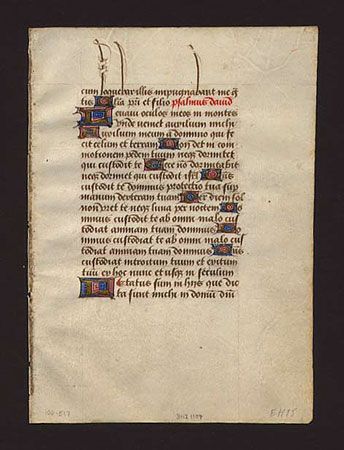 cum loquebar illis impugnabant me g̃
tis Glia pri et filio psalmus david
Leuaui oculos meos in montes
vnde veniet auxilium michi
Auxilium meum a domino qui fe
cit celum et terram Non det in com
motionem pedem tuum neqz dormitet
qui custodit te Ecce no dormitabit
neqz dormiet qui custodit isrl Dns
custodit te dominus protectio tua sup
manum dexteram tuam Per diem sol
non vret te neqz luna per noctem Do
minus custodit te ab omni malo cus
todiat animam tuam dominus Do
minus custodiat te ab omni malo cus
todiat animam tuam dominus Dns
custodiat introitum tuum et exitum
tuu ex hoc nunc et usqz in seculum
Letatus sum in hiis que dic
ta sunt michi in domu dni
EH15